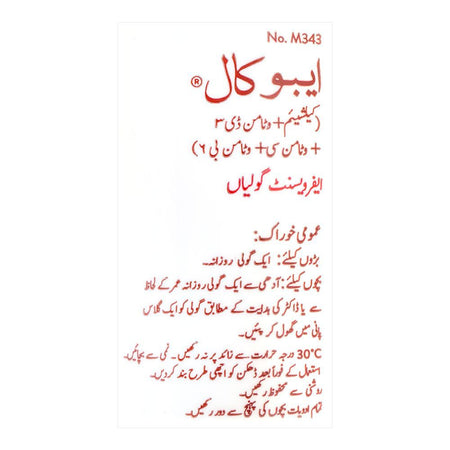 No. M343
ایبوکال®
(کیلشیئم + وٹامن ڈی ۳
+ وٹامن سی + وٹامن بی ۶)
ایفرویسنٹ گولیاں
عمومی خوراک:
بڑوں کیلئے: ایک گولی روزانہ۔
بچوں کیلئے: آدھی سے ایک گولی روزانہ عمر کے لحاظ
سے یا ڈاکٹر کی ہدایت کے مطابق گولی کو ایک گلاس
پانی میں گھول کر پئیں۔
30°C درجہ حرارت سے زائد پر نہ رکھیں۔ نمی سے بچائیں۔
استعمال کے فوراً بعد ڈھکن کو اچھی طرح بند کردیں۔
روشنی سے محفوظ رکھیں۔
تمام ادویات بچوں کی پہنچ سے دور رکھیں۔